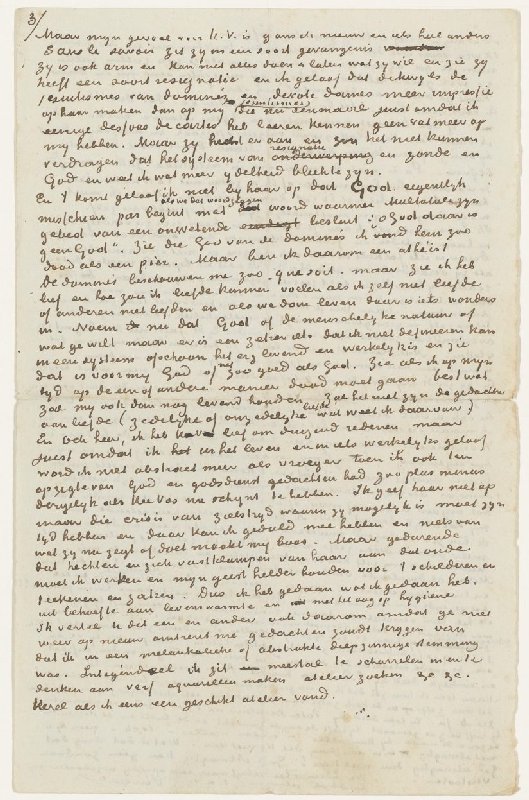 3/
Maar mijn gevoel voor K.V. is gansch nieuw en als heel anders
Sans le savoir zit zij in een soort gevangenis
zij is ook arm en kan niet alles doen en laten wat zij wil en zie zij
heeft een soort resignatie en ik geloof dat dikwijls de
jesuitismes van domines en devote dames meer impressie
op haar maken dan op mij jesuitismes die nu eenmaal juist omdat ik
eenige dessous de cartes heb leeren kennen geen vat meer op
mij hebben. Maar zij hecht er aan en zou het niet kunnen
verdragen dat het systeem van resignatie en zonde en
God en weet ik wat meer ijdelheid bleek te zijn.
En 't komt geloof ik niet bij haar op dat God eigentlijk
misschien pas begint als we dat woord zeggen met dat woord waarmee Multatuli zijn
gebed van een onwetende besluit: "O God daar is
geen God". Zie die God van de domines ik vind hem zoo
dood als een pier. Maar ben ik daarom een atheist
de domines beschouwen me zoo - que soit - maar zie ik heb
lief en hoe zou ik liefde kunnen voelen als ik zelf niet leefde
of anderen niet leefden en als we dan leven daar is iets wonders
in. Noem nu dat God of de menschelijke natuur of
wat ge wilt maar er is een zeker iets dat ik niet definieeren kan
in een systeem ofschoon het erg levend en werkelijk is en zie
dat is voor mij God of zoo goed als God. Zie als ik op mijn
tijd op de een of andere manier dood moet gaan best wat
zal mij ook dan nog levend houden. Zal het niet zijn de gedachte
aan liefde (zedelijke of onzedelijke liefde wat weet ik daarvan)
En och heer, ik heb lief om duizend redenen maar
juist omdat ik het leven en in iets werkelijks geloof
word ik niet abstract meer als vroeger toen ik ook ten
opzigte van God en godsdienst gedachten had zoo plus minus
dergelijk als Kee Vos nu schijnt te hebben. Ik geef haar niet op
maar die crisis van zielstrijd waarin zij mogelijk is moet zijn
tijd hebben en daar kan ik geduld mee hebben en niets van
wat zij nu zegt of doet maakt mij boos. Maar gedurende
dat hechten en zich vastklampen van haar aan dat oude
moet ik werken en mijn geest helder houden voor 't schilderen en
teekenen en zaken. Dus ik heb gedaan wat ik gedaan heb.
uit behoefte aan levenswarmte en met het oog op hygiene
Ik vertel U dit een en ander ook daarom omdat ge niet
weer op nieuw omtrent me gedachten zoudt krijgen van
dat ik in een melankolieke of abstrakte diepzinnige stemming
was. Integendeel ik zit meestal te scharrelen in en te
denken aan verf aquarellen maken atelier zoeken &c &c.
Kerel als ik eens een geschikt atelier vond.